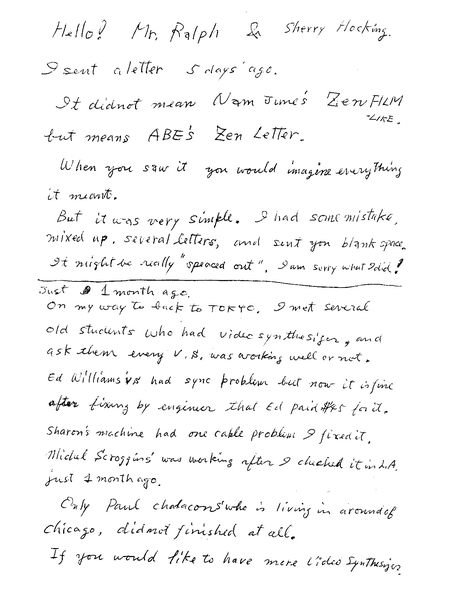 Hello? Mr. Ralph & Sherry Hocking.
I sent a letter 5 days ago.
It didnot mean Nam June's Zen FILM
-LIKE.
but means ABE's Zen Letter.
When you saw it you would imagine everything
it meant.
But it was very simple. I had some mistake,
mixed up. several letters, and sent you blank space.
It might be really "spaced out". I am sorry what I did!
Just 1 month ago.
On my way to back to TOKYO. I met several
old students who had video synthesizer, and
ask them every V.S. was working well or not.
Ed Williams' VS had sync problem but now it is fine
after fixing by engineer that Ed paid $45 for it.
Sharon's machine had one cable problem I fixed it.
Michel Scroggins' was working after I checked it in L.A.
just 1 month ago.
Only Paul who is living in around of
Chicago, didnot finished at all.
If you would like to have more Video Synthesizer